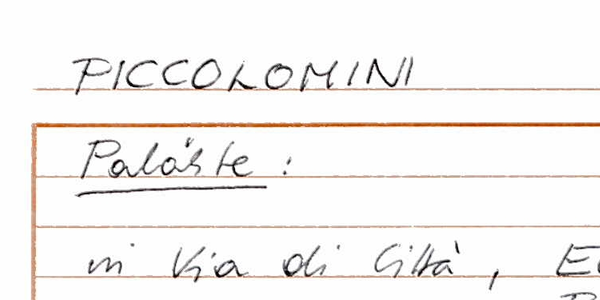 PICCOLOMINI
Paläste :
in Via di Città ,